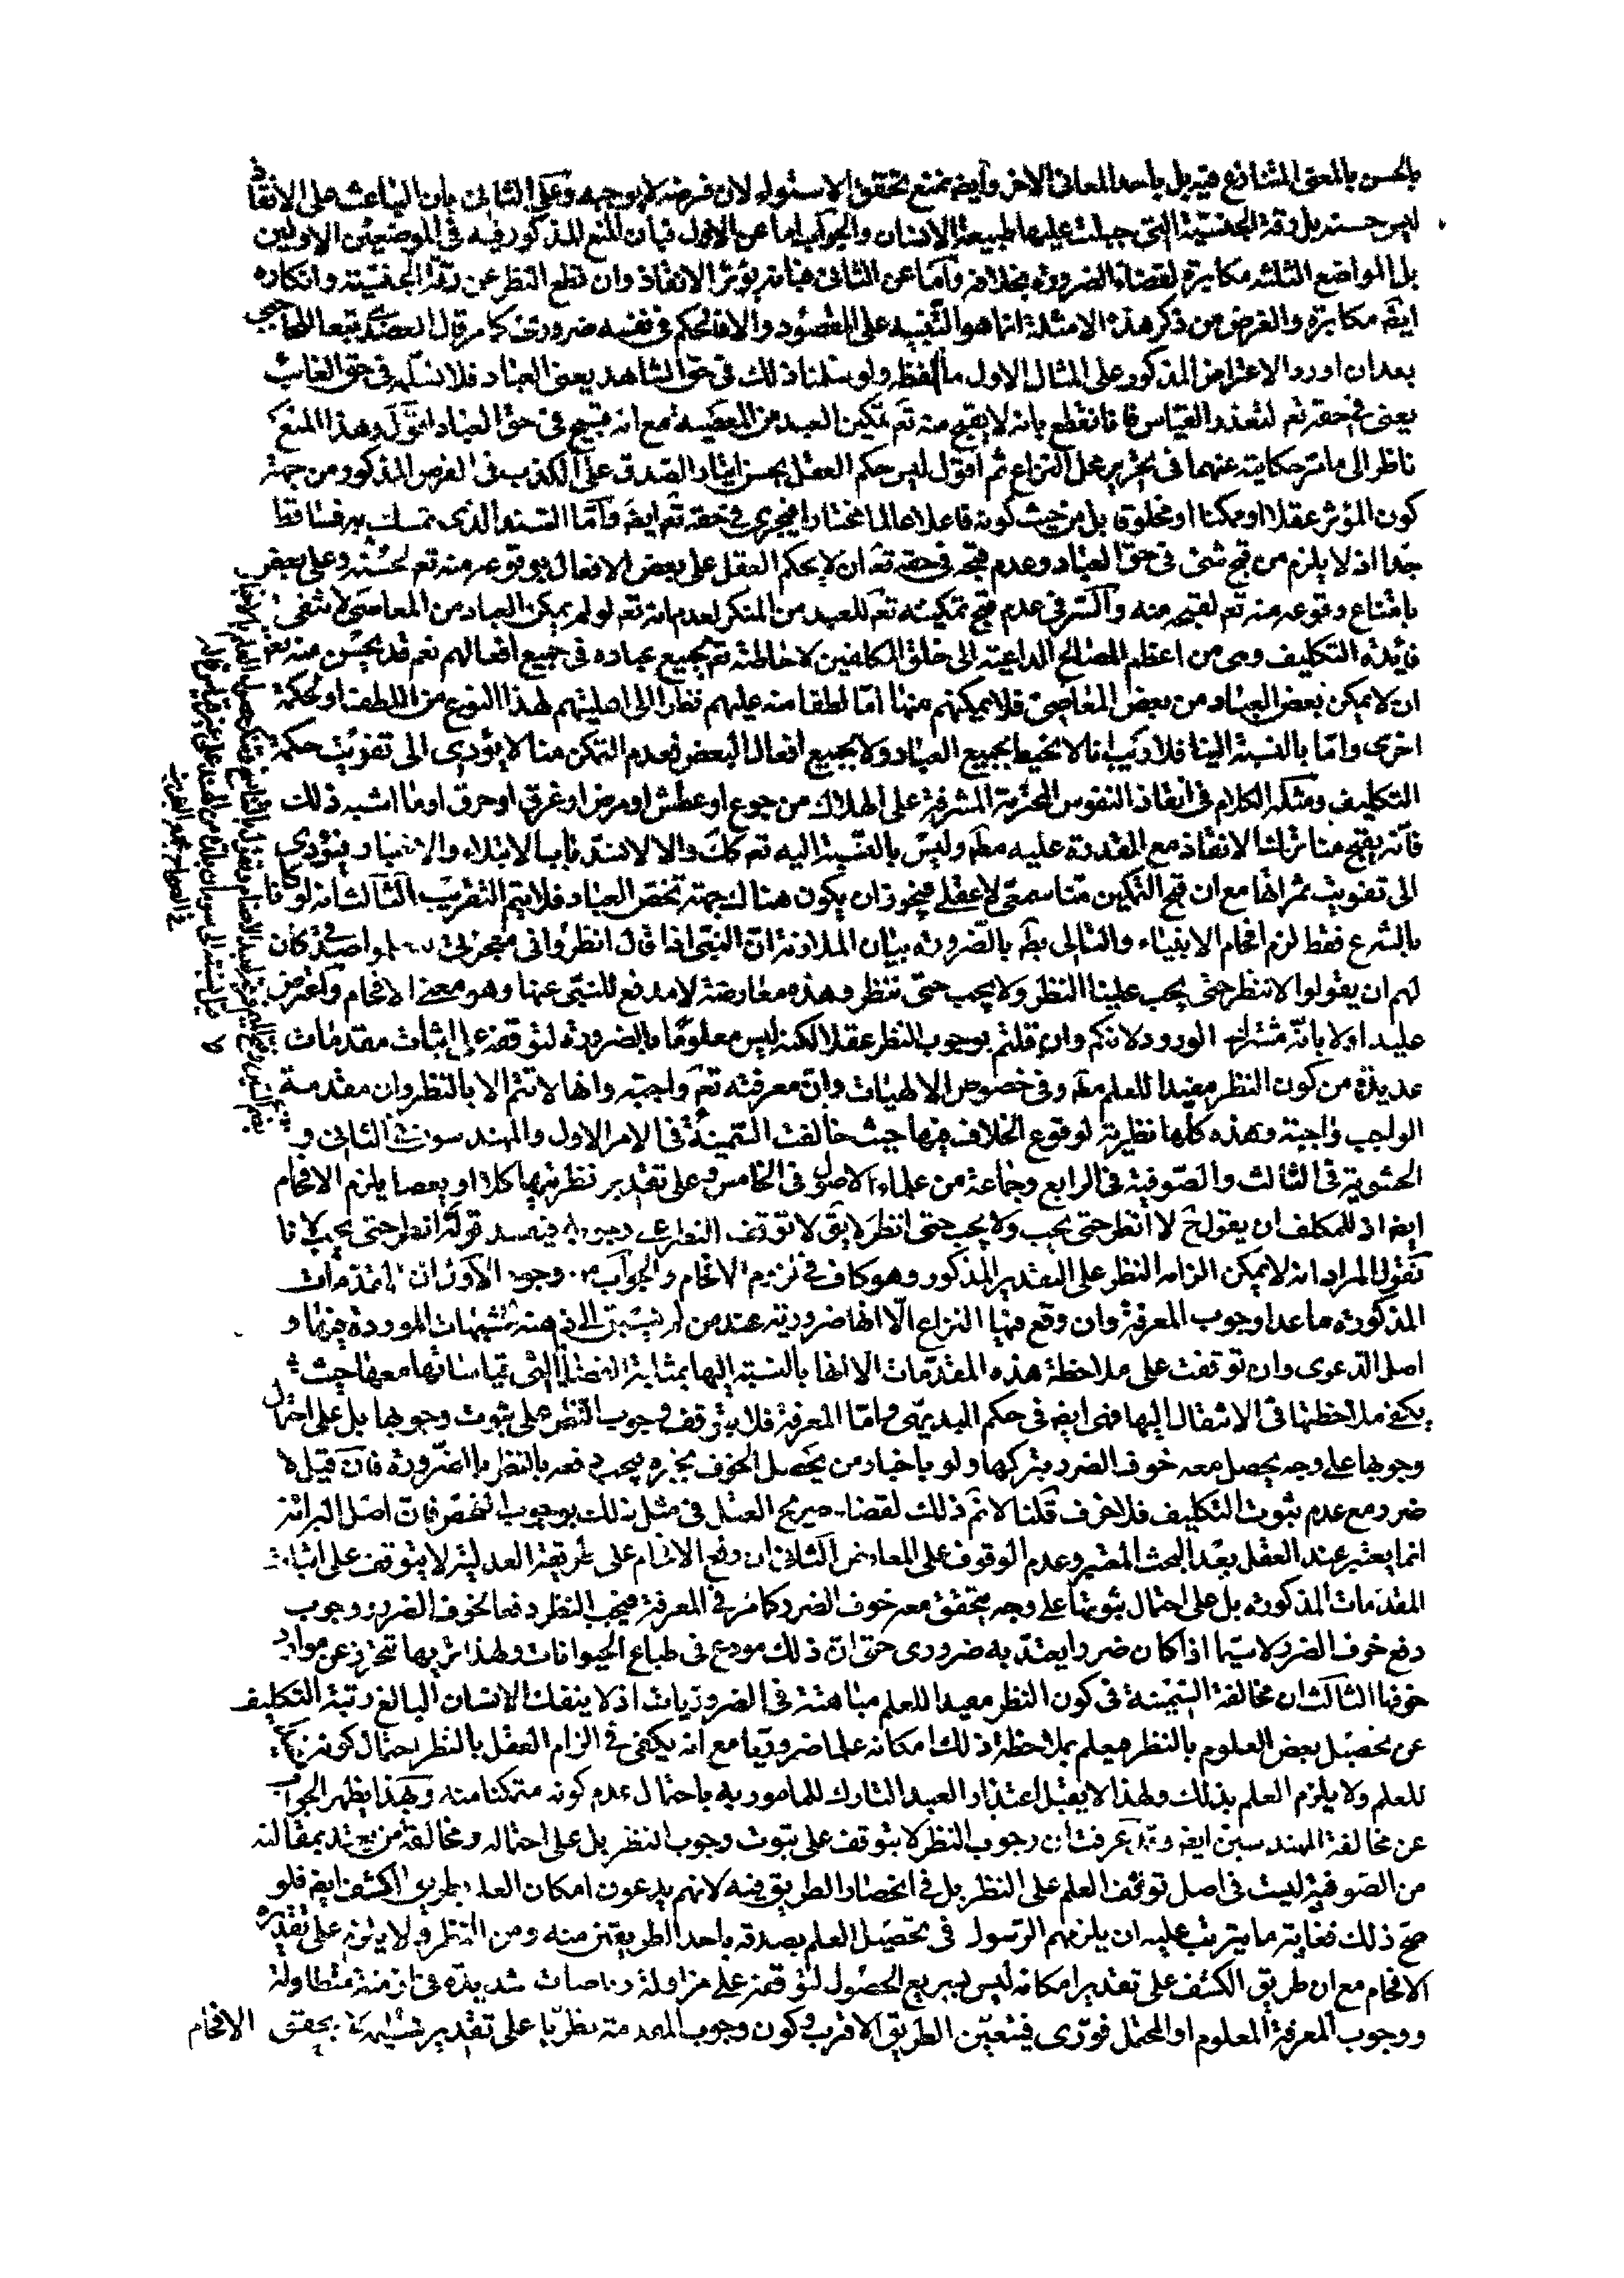 بالحسن بالمعنى المتنازع فيه بل باحد المعانى الاخر وايضا يمتنع تحقق الاستواء لان فرضه لا يوجبه وعلى الثانى بان الباعث على الانقاذ
ليس حسنه بل رقة الجنسية التى جبلت عليها طبيعة الانسان والجواب اما عن الاول فبان المنع المذكور فيه فى الموضعين الاولين
بل المواضع الثلثة مكابرة لقضاء الضرورة بخلافه واما عن الثانى فبانه يؤثر الانقاذ وان قطع النظر عن رقة الجنسية وانكاره
ايضا مكابرة والغرض من ذكر هذه الامثلة انما هو التنبيه على المقصود والا فالحكم فى نفسه ضرورى كما مر قال العضدى تبعا للحاجبى
بعد ان اورد الاعتراض المذكور على المثال الاول ما لفظه ولو سلمنا ذلك فى حق الشاهد يعنى العباد فلا نسلمه فى حق الغائب
يعنى فى حقه تع لتعذر القياس فانا نقطع بانه لا يقبح منه تع تمكين العبد من المعصية مع انه قبيح فى حق العباد اقول وهذا المنع
ناظر الى ما مر حكايته عنهما فى تحرير محل النزاع ثم اقول ليس حكم العقل بحسن ايثار الصدق على الكذب فى الفرض المذكور من جهة
كون المؤثر عقلا او ممكنا او مخلوقا بل من حيث كونه فاعلا عالما مختارا فيجرى فى حقه تع ايضا واما السند الذى تمسك به فساقط
جدا اذ لا يلزم من قبح شئ فى حق العباد وعدم قبحه فى حقه تع ان لا يحكم العقل على بعض الافعال بوقوعه منه تع لحسنه وعلى بعض
بامتناع وقوعه منه تع لقبحه منه والسر فى عدم قبح تمكينه تع للعبد من المنكر لعدم انه تع لو لم يمكن العباد من المعاصى لانتفى
فائدة التكليف وهى من اعظم المصالح الداعية الى خلق المكلفين لاحاطته تع بجميع عباده فى جميع افعالهم نعم قد يحسن منه تع
ان لا يمكن بعض العباد من بعض المعاصى فلا يمكنهم منها اما لطفا منه عليهم نظرا الى اهليتهم لهذا النوع من اللطف او لحكمة
اخرى واما بالنسبة الينا فلا ريب انا لا نحيط بجميع العباد ولا بجميع افعال البعض فعدم التمكن منا لا يؤدى الى تفويت حكمة
التكليف ومثله الكلام فى انقاذ النفوس المحترمة المشرفة على الهلاك من جوع او عطش او مرض او غرق او حرق او ما اشبه ذلك
فانه يقبح منا ترك الانقاذ مع المقدرة عليه مط وليس بالنسبة اليه تع كك والا لانسد باب الابتلاء والاختبار فيؤدى
الى تفويت ثمراتها مع ان قبح التمكين منا سمعى لا عقلى فيجوز ان يكون هناك جهة تخص العباد فلا يتم التقريب الثالث انه لو كانا
بالشرع فقط لزم افحام الانبياء والتالى بط بالضرورة بيان الملازمة ان النبى اذا قال انظروا فى معجزتى لتعلموا صدقى كان
لهم ان يقولوا لا ننظر حتى يجب علينا النظر ولا يجب حتى ننظر وهذه معارضة لا مدفع للنبى عنها وهو معنى الافحام واعترض
عليه اولا بانه مشترك الورود لانكم وان قلتم بوجوب النظر عقلا لكنه ليس معلوما بالضرورة لتوقفه على اثبات مقدمات
عديدة من كون النظر مفيدا للعلم مط وفى خصوص الالهيات وان معرفته تع واجبة وانها لا تتم الا بالنظر وان مقدمة
الواجب واجبة وهذه كلها نظرية لوقوع الخلاف فيها حيث خالفت السمنية فى الامر الاول والمهندسون فى الثانى و
الحشوية فى الثالث والصوفية فى الرابع وجماعة من علماء الاصول فى الخامس وعلى تقدير نظريتها كلا او بعضا يلزم الافحام
ايضا اذ للمكلف ان يقول ح لا انظر حتى يجب ولا يجب حتى انظر لا يقال لا توقف النظر على وجوبه فيفسد قوله لا انظر حتى يجب لانا
نقول المراد انه لا يمكن الزامه النظر على التقدير المذكور وهو كاف فى لزوم الافحام والجواب من وجوه الاول ان المقدمات
المذكورة ما عدا وجوب المعرفة وان وقع فيها النزاع الا انها ضرورية عند من لم يسبق الى ذهنه الشبهات الموردة فيها و
اصل الدعوى وان توقفت على ملاحظة هذه المقدمات الا انها بالنسبة اليها بمثابة القضايا التى قياساتها معها حيث
يكفى ملاحظتها فى الانتقال اليها فهى ايضا فى حكم البديهى واما المعرفة فلا يتوقف وجوب النظر على ثبوت وجوبها بل على احتمال
وجوبها على وجه يحصل معه خوف الضرر بتركها ولو باخبار من يحصل الخوف بخبره فيجب دفعه بالنظر بالضرورة فان قيل لا
ضرر مع عدم ثبوت التكليف فلا خوف قلنا لا نم ذلك لقضاء صريح العقل فى مثل ذلك بوجوب الفحص فان اصل البرائة
انما يعتبر عند العقل بعد البحث المعتبر وعدم الوقوف على المعارض الثانى ان دفع الافحام على طريقة العدلية لا يتوقف على اثبات
المقدمات المذكورة بل على احتمال ثبوتها على وجه يتحقق معه خوف الضرر كما مر فى المعرفة فيجب النظر دفعا لخوف الضرر ووجوب
دفع خوف الضرر لا سيما اذا كان ضررا يعتد به ضرورى حتى ان ذلك مودع فى طباع الحيوانات ولهذا تريها تتحرز عن موارد
خوفها الثالث ان مخالفة السمنية فى كون النظر مفيدا للعلم مباهتة فى الضروريات اذ لا ينفك الانسان البالغ رتبة التكليف
عن تحصيل بعض العلوم بالنظر فيعلم بملاحظة ذلك امكانه علما ضروريا مع انه يكفى فى الزام العقل بالنظر احتمال كونه
للعلم ولا يلزم العلم بذلك ولهذا لا يقبل اعتذار العبد التارك للمامور به باحتمال عدم كونه متمكنا منه وبهذا يظهر الجواب
عن مخالفة المهندسين ايضا وقد عرفت ان وجوب النظر لا يتوقف على ثبوت وجوب النظر بل على احتماله ومخالفة من يعتد بمقالته
من الصوفية ليست فى اصل توقف العلم على النظر بل فى انحصار الطريق فيه لانهم يدعون امكان العلم بطريق الكشف ايضا فلو
صح ذلك فغاية ما يترتب عليه ان يلزمهم الرسول فى تحصيل العلم بصدقه باحد الطريقين منه ومن النظر ولا يلزم على تقديره
الافحام مع ان طريق الكشف على تقدير امكانه ليس بسريع الحصول لتوقفه على مزاولة رياضات شديدة فى ازمنة متطاولة
ووجوب المعرفة المعلوم او المحتمل فورى فيتعين الطريق الاقرب وكون وجوب المقدمة نظريا على تقدير تسليمه لا يحقق الافحام